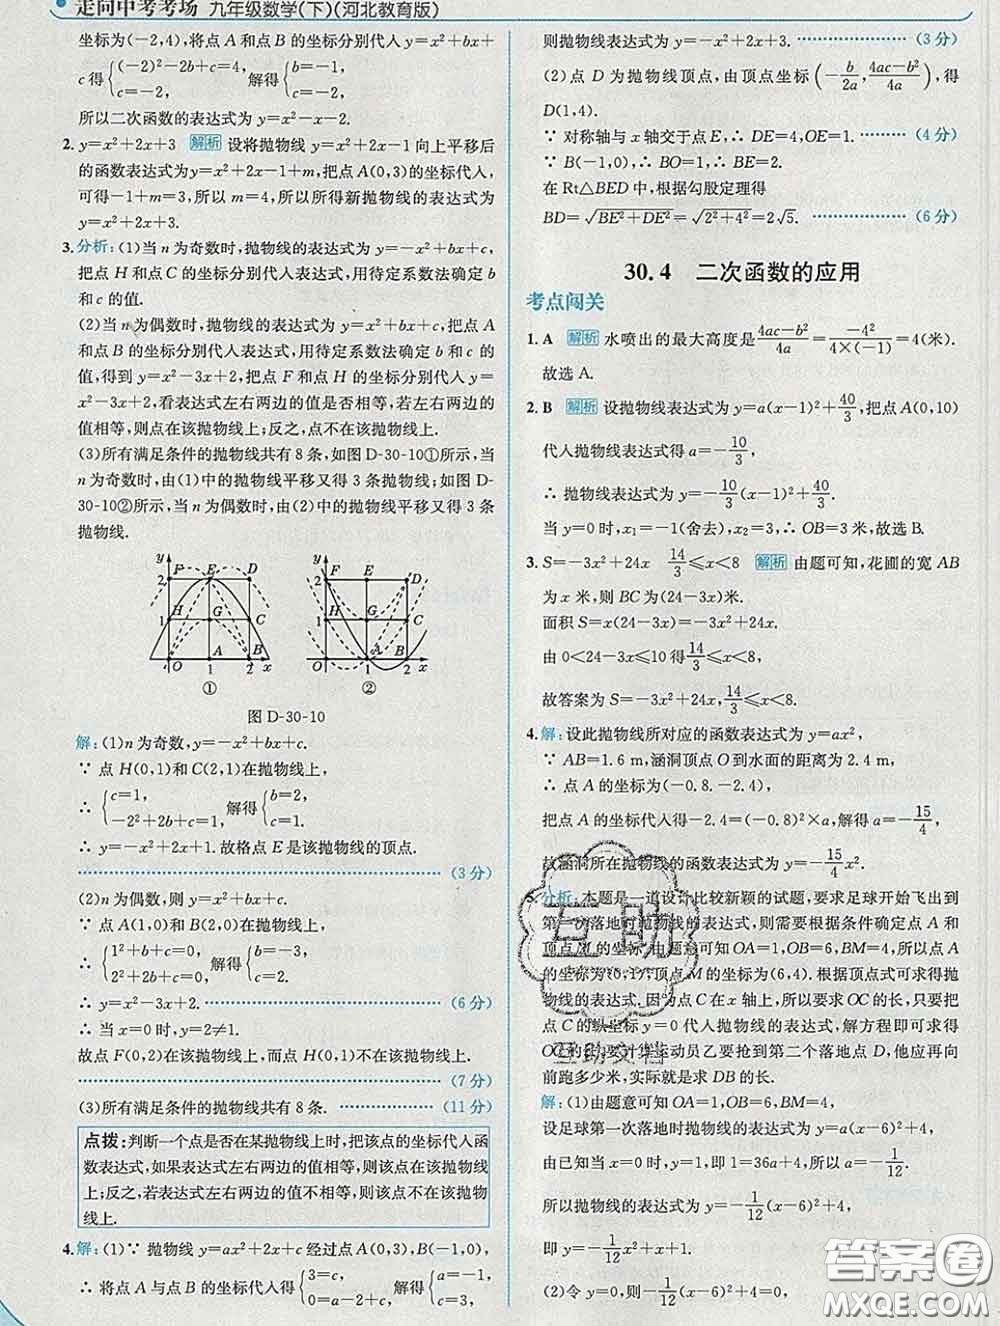 走向中考考场 九年级数学(下)(河北教育版)
坐标为(-2,4),将点A和点B的坐标分别代入y=x²+bx+
c得{(-2)²-2b+c=4, c=-2, 解得{b=-1, c=-2.
所以二次函数的表达式为y=x²-x-2.
2. y=x²+2x+3 解析 设将抛物线y=x²+2x-1向上平移后
的函数表达式为y=x²+2x-1+m,把点A(0,3)的坐标代入,
可得-1+m=3,所以m=4,所以所得新抛物线的表达式为
y=x²+2x+3.
3. 分析:(1)当n为奇数时,抛物线的表达式为y=-x²+bx+c,
把点H和点C的坐标分别代入表达式,用待定系数法确定b
和c的值.
(2)当n为偶数时,抛物线的表达式为y=x²+bx+c,把点A
和点B的坐标分别代入表达式,用待定系数法确定b和c的
值,得到y=x²-3x+2,把点F和点H的坐标分别代入y=
x²-3x+2,看表达式左右两边的值是否相等,若左右两边的值
相等,则点在该抛物线上;反之,点不在该抛物线上.
(3)所有满足条件的抛物线共有8条,如图D-30-10①所示,当
n为奇数时,由(1)中的抛物线平移又得3条抛物线;如图D-
30-10②所示,当n为偶数时,由(2)中的抛物线平移又得3条
抛物线.
y 2 F E D H 1 G C O A 1 B 2 x ①
y F E D 2 H G C 1 O A 1 B 2 x ②
图 D-30-10
解:(1)n为奇数,y=-x²+bx+c.
∵ 点H(0,1)和C(2,1)在抛物线上,
∴ {c=1, -2²+2b+c=1, 解得{b=2, c=1.
∴ y=-x²+2x+1. 故格点E是该抛物线的顶点.
(3分)
(2)n为偶数,则y=x²+bx+c.
∵ 点A(1,0)和B(2,0)在抛物线上,
∴ {1²+b+c=0, 2²+2b+c=0, 解得{b=-3, c=2.
∴ y=x²-3x+2. (6分)
∴ 当x=0时,y=2≠1.
故点F(0,2)在该抛物线上,而点H(0,1)不在该抛物线上.
(7分)
(3)所有满足条件的抛物线共有8条. (11分)
点拨:判断一个点是否在某抛物线上时,把该点的坐标代入函
数表达式,如果表达式左右两边的值相等,则该点在该抛物线
上;反之,若表达式左右两边的值不相等,则该点不在该抛物
线上.
4. 解:(1)∵ 抛物线y=ax²+2x+c经过点A(0,3),B(-1,0),
∴ 将点A与点B的坐标代入得{3=c, 0=a-2+c, 解得{a=-1, c=3,
则抛物线表达式为y=-x²+2x+3. (3分)
(2)点D为抛物线顶点,由顶点坐标(-b/2a, (4ac-b²)/4a),得
D(1,4).
∵ 对称轴与x轴交于点E,∴ DE=4,OE=1. (4分)
∵ B(-1,0),∴ BO=1,∴ BE=2.
在Rt△BED中,根据勾股定理得
BD=√(BE²+DE²)=√(2²+4²)=2√5. (6分)
30.4 二次函数的应用
考点闯关
1. A 解析 水喷出的最大高度是(4ac-b²)/4a=(-4²)/(4×(-1))=4(米).
故选A.
2. B 解析 设抛物线表达式为y=a(x-1)²+40/3,把点A(0,10)
代入抛物线表达式得a=-10/3,
∴ 抛物线表达式为y=-10/3(x-1)²+40/3.
当y=0时,x₁=-1(舍去),x₂=3,∴ OB=3米,故选B.
3. S=-3x²+24x 14/3≤x<8 解析 由题可知,花圃的宽AB
为x米,则BC为(24-3x)米.
面积S=x(24-3x)=-3x²+24x.
由0<24-3x≤10得14/3≤x<8,
故答案为S=-3x²+24x,14/3≤x<8.
4. 解:设此抛物线所对应的函数表达式为y=ax²,
∵ AB=1.6 m,涵洞顶点O到水面的距离为2.4 m,
∴ 点A的坐标为(-0.8,-2.4),
把点A的坐标代入得-2.4=(-0.8)²×a,解得a=-15/4,
故涵洞所在抛物线的函数表达式为y=-15/4x².
5. 分析 本题是一道设计比较新颖的试题,要求足球开始飞出到
第一次落地时抛物线的表达式,则需要根据条件确定点A和
顶点M的坐标,由题意可知OA=1,OB=6,BM=4,所以点A
的坐标为(0,1),顶点M的坐标为(6,4). 根据顶点式可求得抛
物线的表达式. 因为点C在x轴上,所以要求OC的长,只要把
点C的纵坐标y=0代入抛物线的表达式,解方程即可求得
OC的长. 要计算运动员乙要抢到第二个落地点D,他应再向
前跑多少米,实际就是求BD的长.
解:(1)由题意可知OA=1,OB=6,BM=4,
设足球第一次落地时抛物线的表达式为y=a(x-6)²+4,
由已知当x=0时,y=1,即1=36a+4,所以a=-1/12.
所以抛物线的表达式为y=-1/12(x-6)²+4,
即y=-1/12x²+x+1.
(2)令y=0,则-1/12(x-6)²+4=0,
互助
互助文档
答案圈
MXQE.COM